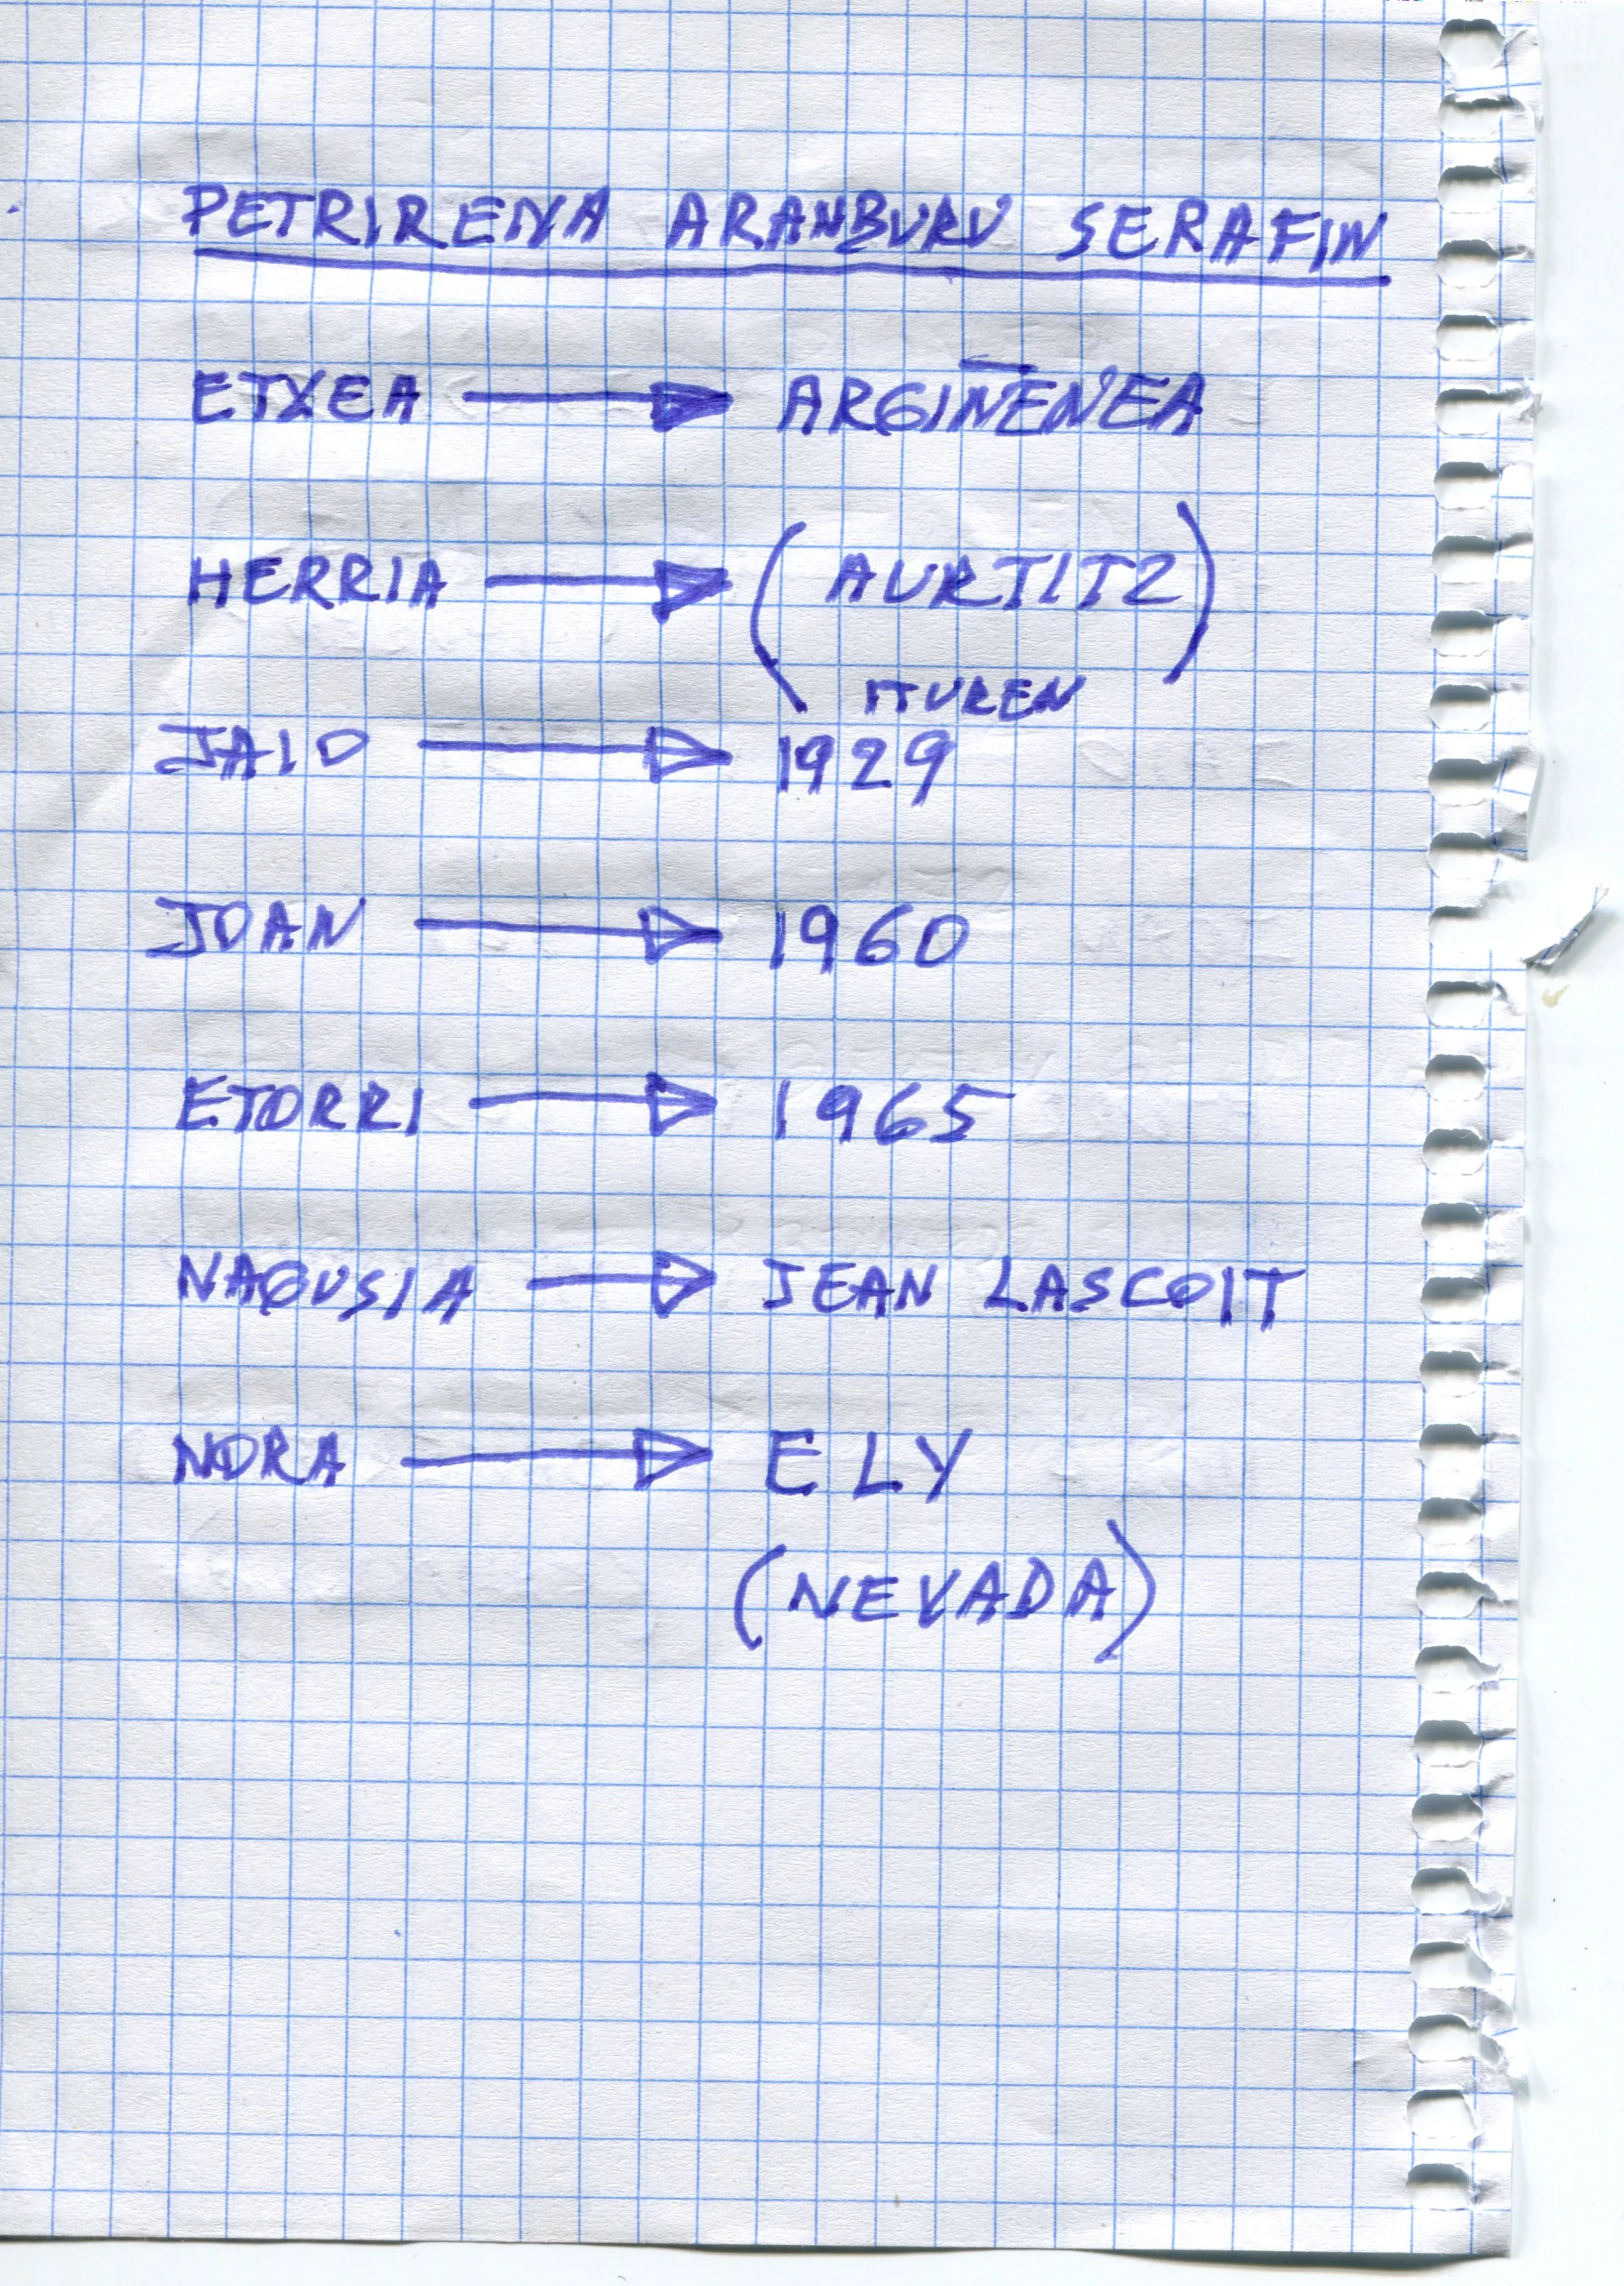 PETRIRENA ARANBURU SERAFIN
ETXEA → ARGIÑENEA
HERRIA → (AURTITZ)
ITUREN
JAIO → 1929
JOAN → 1960
ETORRI → 1965
NAGUSIA → JEAN LASCOIT
NORA → ELY
(NEVADA)